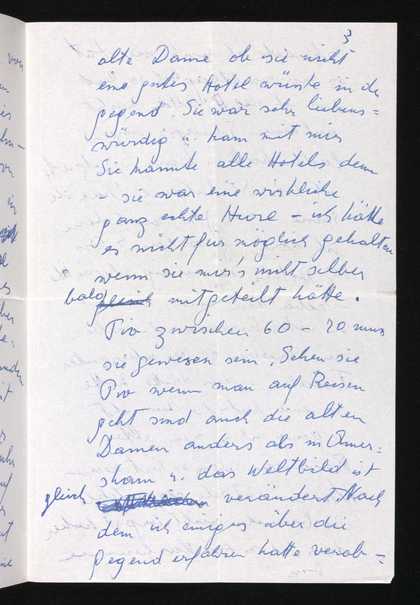 3
alte Dame ob sie nicht
eine gutes Hotel wüsste in der
gegend. Sie war sehr liebens=
würdig u. kam mit mir
Sie kannte alle Hotels denn
– sie war eine wirkliche
ganz echte Hure – ich hätte
es nicht für möglich gehalten
wenn sie mir's nicht selber
bald mitgeteilt hätte.
Tiv zwischen 60 – 70 muss
sie gewesen sein. Sehen sie
Tiv wenn man auf Reisen
geht sind auch die alten
Damen anders als in Amer=
sham u. das Weltbild ist
gleich verändert. Nach
dem ich einiges über die
gegend erfahren hatte verab=